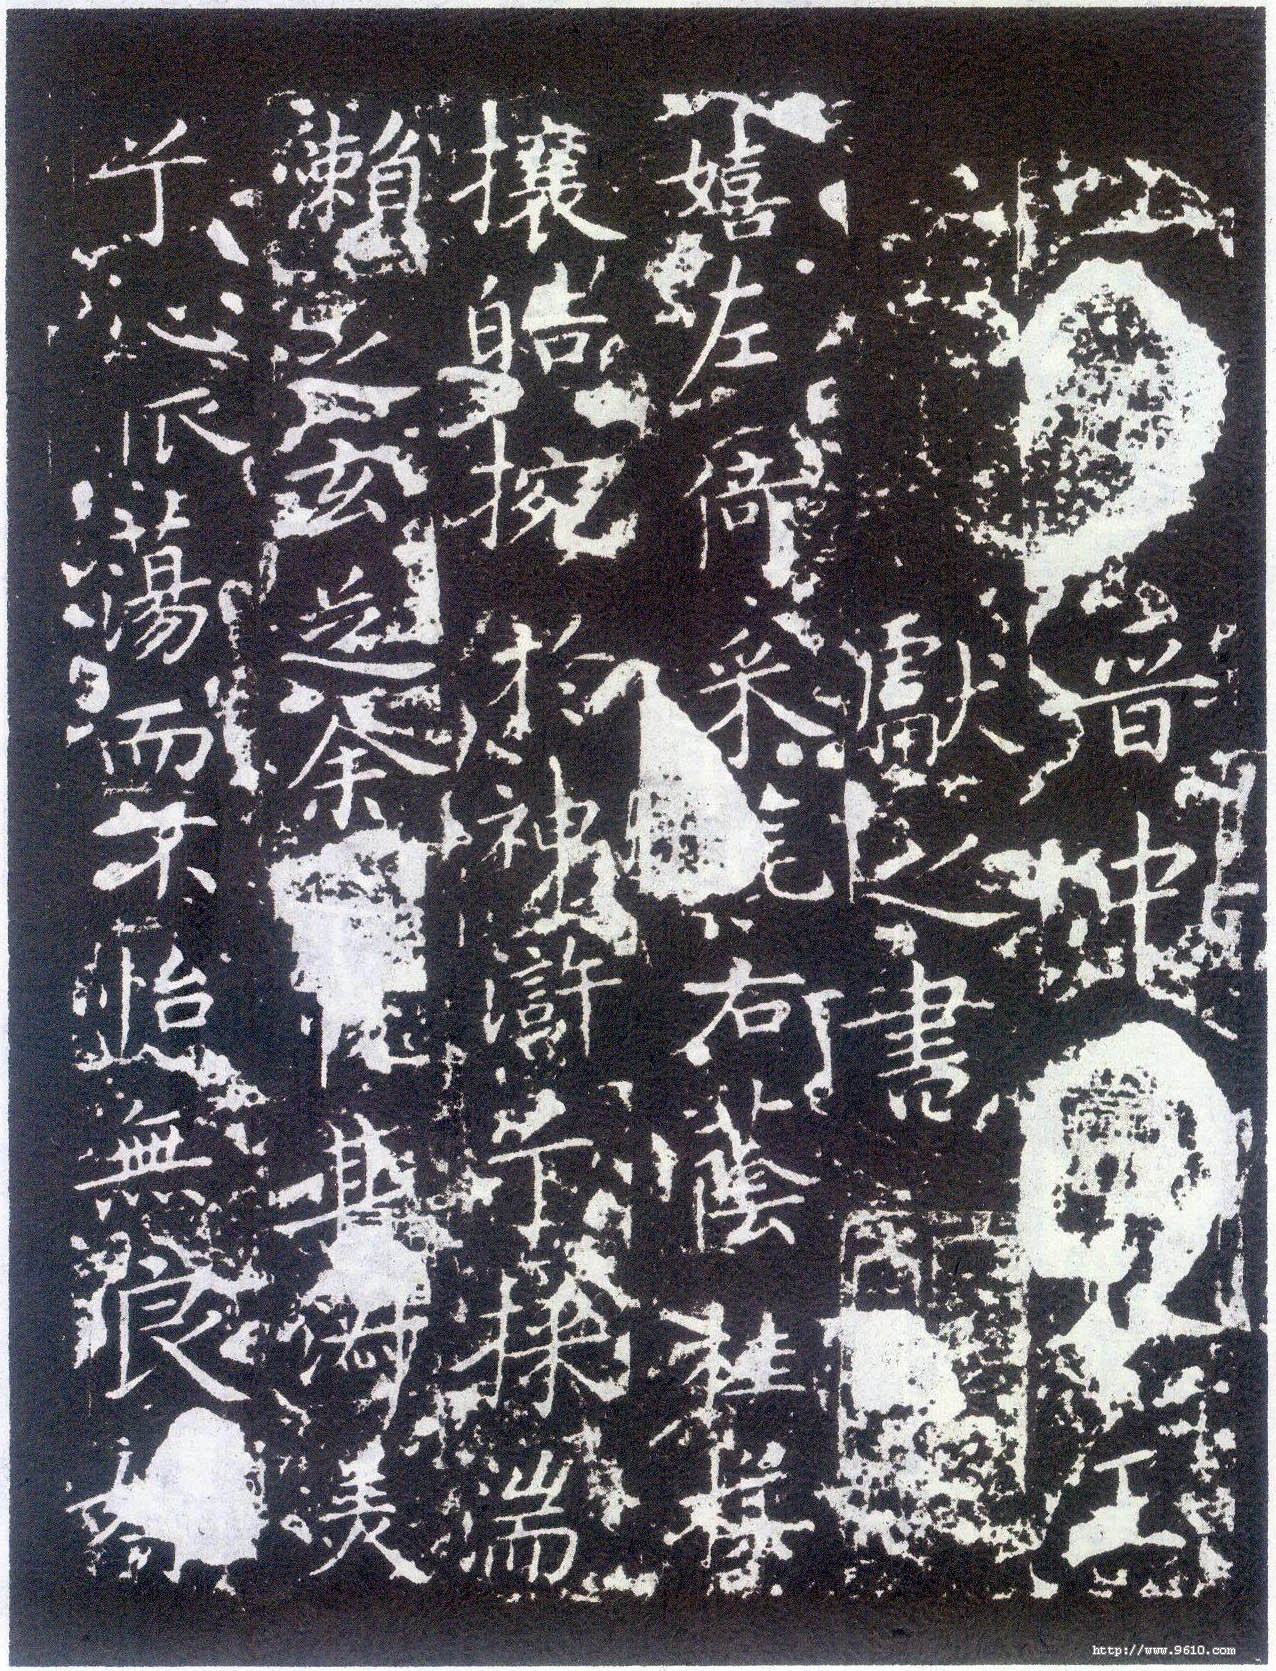 晉中王
獻之書
嬉左倚采旄右蔭桂旗
攘皓腕於神滸兮採湍
瀨之玄芝余其淑美
兮心振蕩而不怡無良
http://www.9610.com